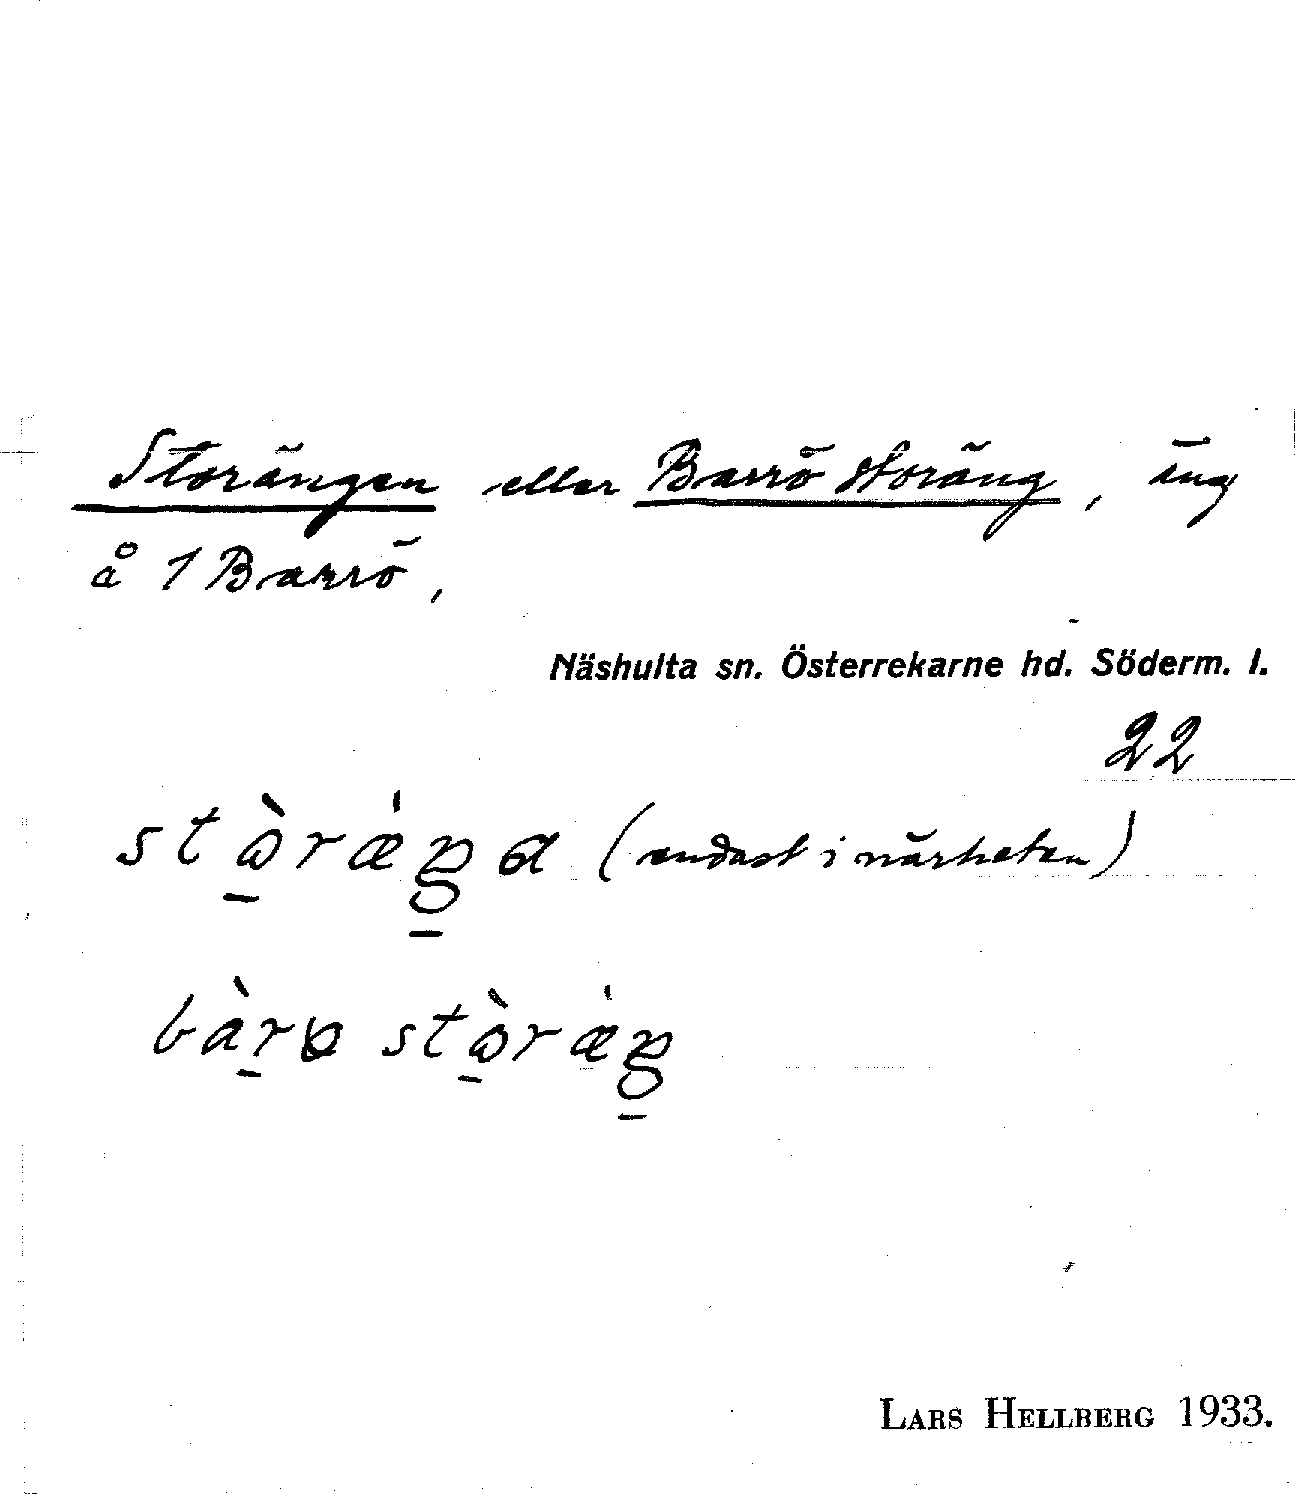 Storängen eller Barrö storäng, äng
å 1 Barrö,
Näshulta sn. Österrekarne hd. Söderm. l.
22
(endast i närheten)
LARS HELLBERG 1933.